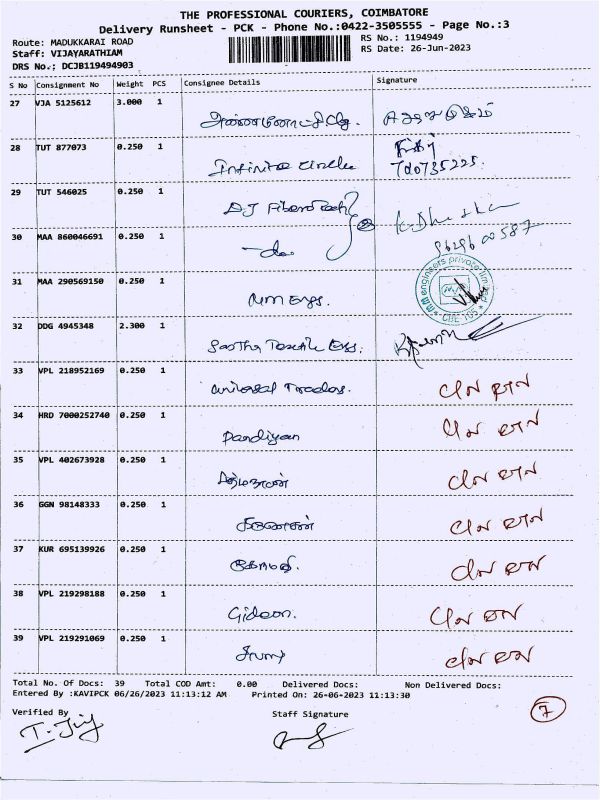 THE PROFESSIONAL COURIERS, COIMBATORE
Delivery Runsheet - PCK - Phone No.:0422-3505555 - Page No.:3
Route: MADUKKARAI ROAD
RS No.: 1194949
Staff: VIJAYARATHIAM
RS Date: 26-Jun-2023
DRS No.; DCJB119494903
S No Consignment No Weight PCS Consignee Details Signature
27 VJA 5125612 3.000 1
28 TUT 877073 0.250 1 Infinite Circle
29 TUT 546025 0.250 1 DJ Fiber Tech
30 MAA 860046691 0.250 1 -do-
31 MAA 290569150 0.250 1 MM Engs.
m.m engineers private limited
CBE 105
32 DDG 4945348 2.300 1 Sastha Textile Engs.
33 VPL 218952169 0.250 1 Universal Traders.
34 HRD 7000252740 0.250 1 Pandiyan
35 VPL 402673928 0.250 1
36 GGN 98148333 0.250 1
37 KUR 695139926 0.250 1
38 VPL 219298188 0.250 1 Gideon.
39 VPL 219291069 0.250 1
Total No. Of Docs: 39 Total COD Amt: 0.00 Delivered Docs: Non Delivered Docs:
Entered By :KAVIPCK 06/26/2023 11:13:12 AM Printed On: 26-06-2023 11:13:30
7
Verified By Staff Signature